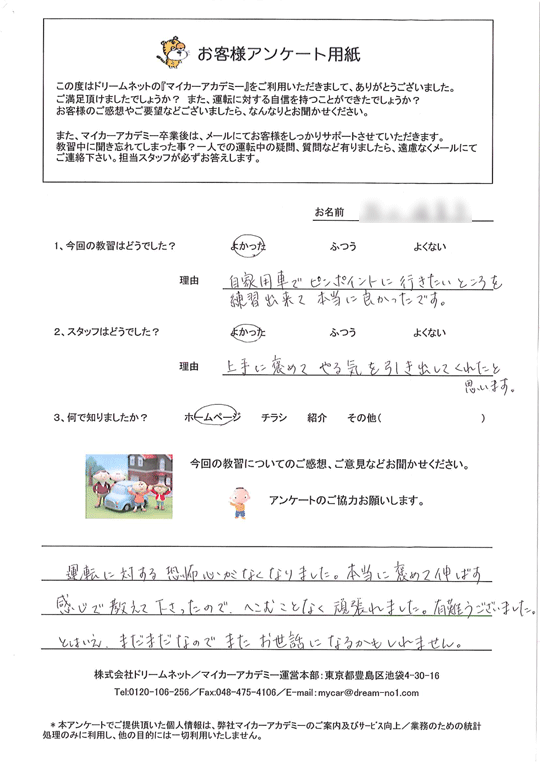 お客様アンケート用紙
この度はドリームネットの『マイカーアカデミー』をご利用いただきまして、ありがとうございました。
ご満足頂けましたでしょうか? また、運転に対する自信を持つことができたでしょうか?
お客様のご感想やご要望などございましたら、なんなりとお聞かせください。
また、マイカーアカデミー卒業後は、メールにてお客様をしっかりサポートさせていただきます。
教習中に聞き忘れてしまった事?一人での運転中の疑問、質問など有りましたら、遠慮なくメールにて
ご連絡下さい。担当スタッフが必ずお答えします。
お名前
1、今回の教習はどうでした? よかった ふつう よくない
理由 自家用車でピンポイントに行きたいところを
練習出来て本当に良かったです。
2、スタッフはどうでした? よかった ふつう よくない
理由 上手に褒めてやる気を引き出してくれたと
思います。
3、何で知りましたか? ホームページ チラシ 紹介 その他( )
今回の教習についてのご感想、ご意見などお聞かせください。
アンケートのご協力お願いします。
運転に対する恐怖心がなくなりました。本当に褒めて伸ばす
感じで教えて下さったので、へこむことなく頑張れました。有難うございました。
とはいえ、まだまだなのでまたお世話になるかもしれません。
株式会社ドリームネット/マイカーアカデミー運営本部:東京都豊島区池袋4-30-16
Tel:0120-106-256/Fax:048-475-4106/E-mail:mycar@dream-no1.com
*本アンケートでご提供頂いた個人情報は、弊社マイカーアカデミーのご案内及びサービス向上/業務のための統計
処理のみに利用し、他の目的には一切利用いたしません。